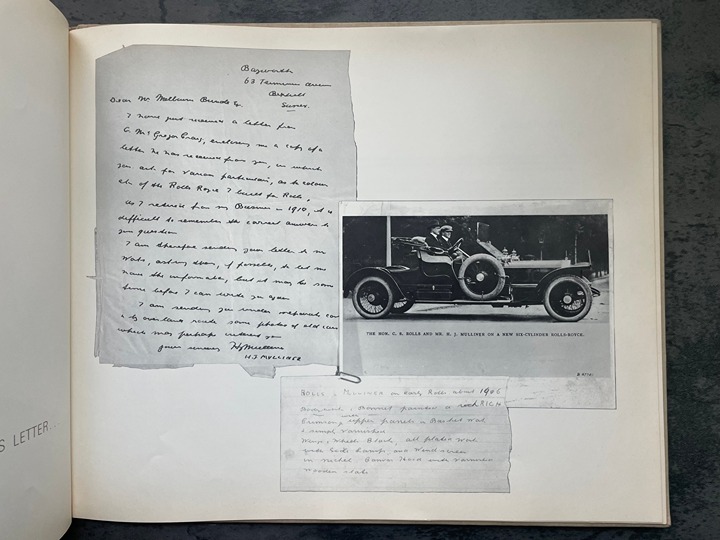 Bexhill
Sussex.
Dear Mr Milburn
I have just received a letter from
C. McGregor Craig, enclosing me a copy of a
letter he has received from you, in which
you ask for various particulars, as to colour
etc. of the Rolls Royce I built for Rolls,
As I retired from my Business in 1910, it is
difficult to remember the correct answer to
your question
I am therefore sending your letter to my
Works, asking them, if possible, to let me
have the information, but it may be some
time before I can write you again
I am sending you under separate cover
by overland route some photos of old cars
which may perhaps interest you
yours sincerely HJ Mulliner
H J MULLINER
THE HON. C. S. ROLLS AND MR. H. J. MULLINER ON A NEW SIX-CYLINDER ROLLS-ROYCE.
ROLLS & MULLINER on early Rolls about 1906
Bonnet painted a rich RICH
Crimson, upper panels in Basket Work
& simply Varnished
Wings & Wheels Black, all plated work
Side Lamps and Wind screen
in nickel Canvas Hood with Varnished
Wooden slats
S LETTER..